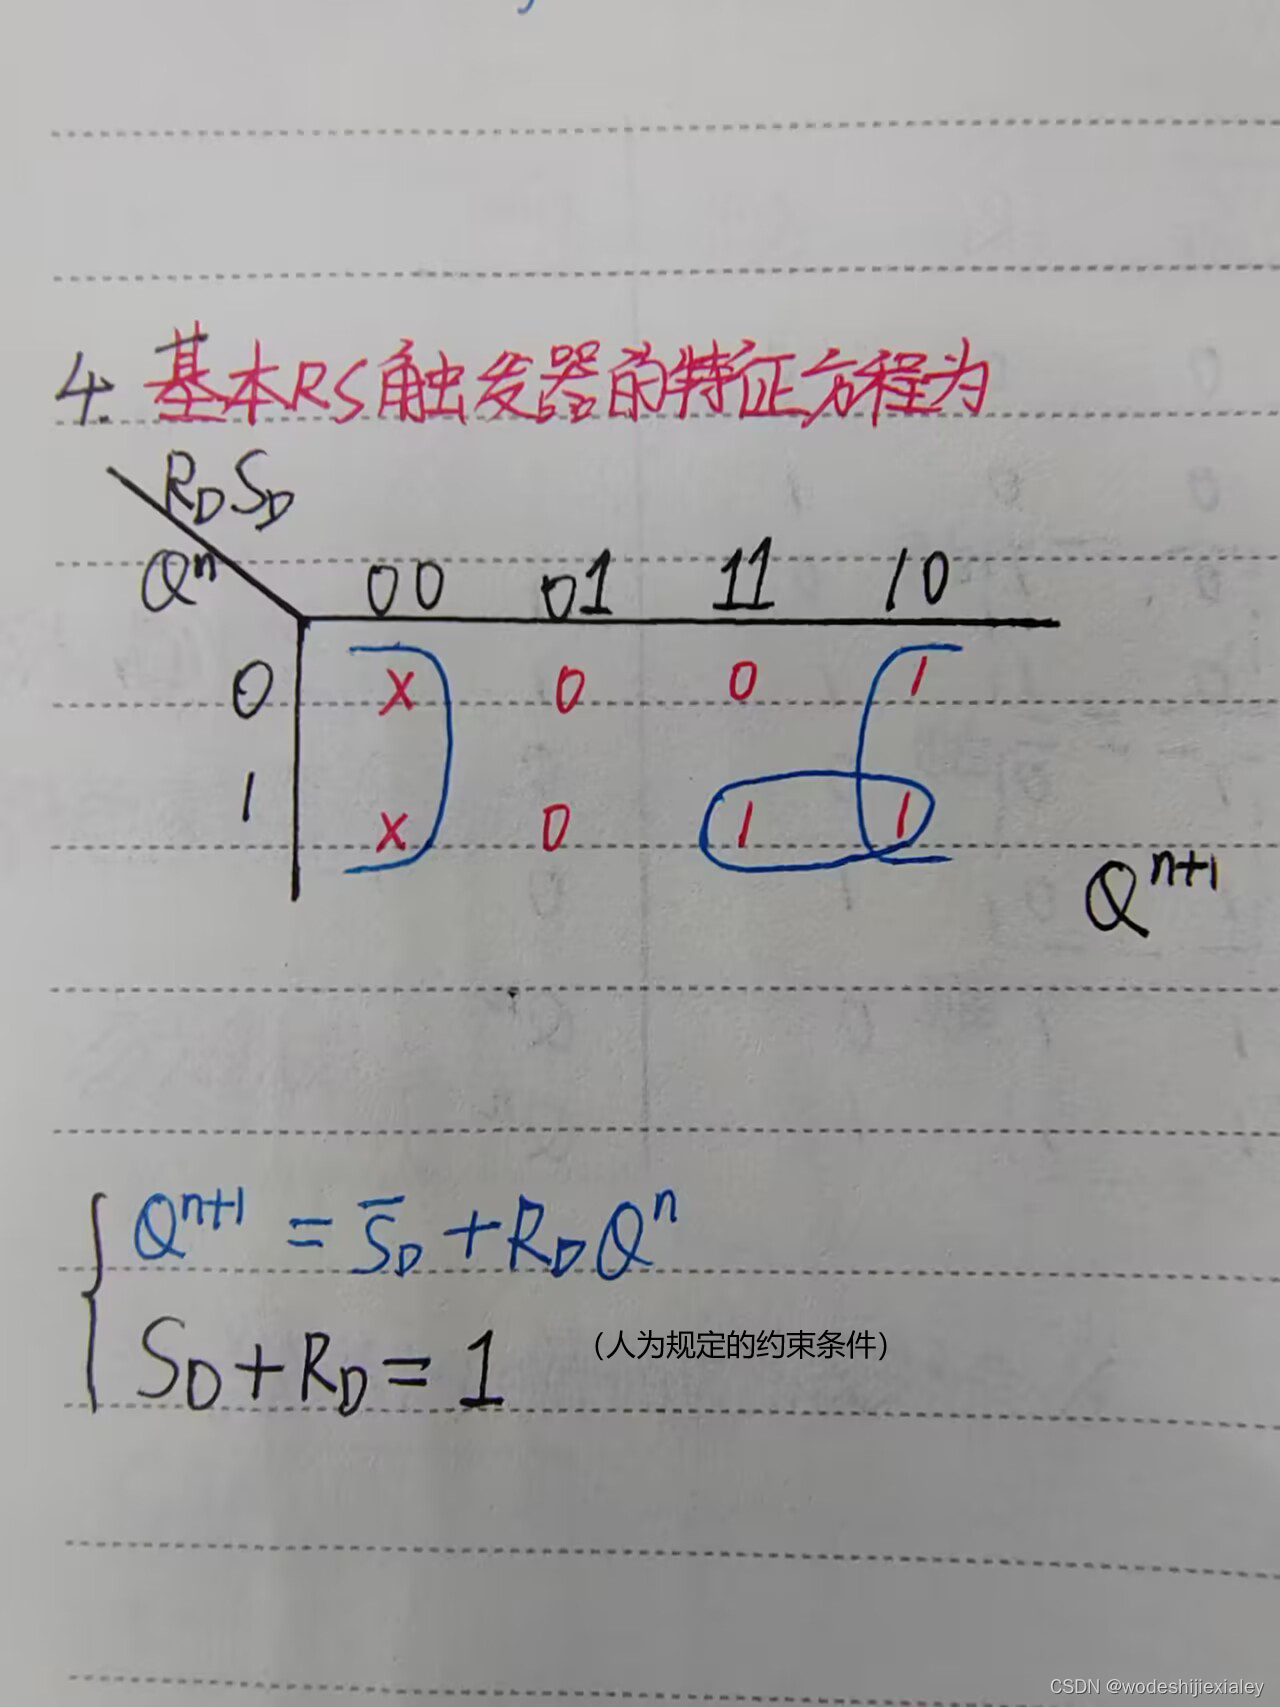 4. 基本RS触发器的特征方程为
R_D S_D
Q^n 00 01 11 10
0 x 0 0 1
1 x 0 1 1
Q^{n+1}
Q^{n+1} = \overline{S}_D + R_D Q^n
S_D + R_D = 1 （人为规定的约束条件）
CSDN @wodeshijiexialey